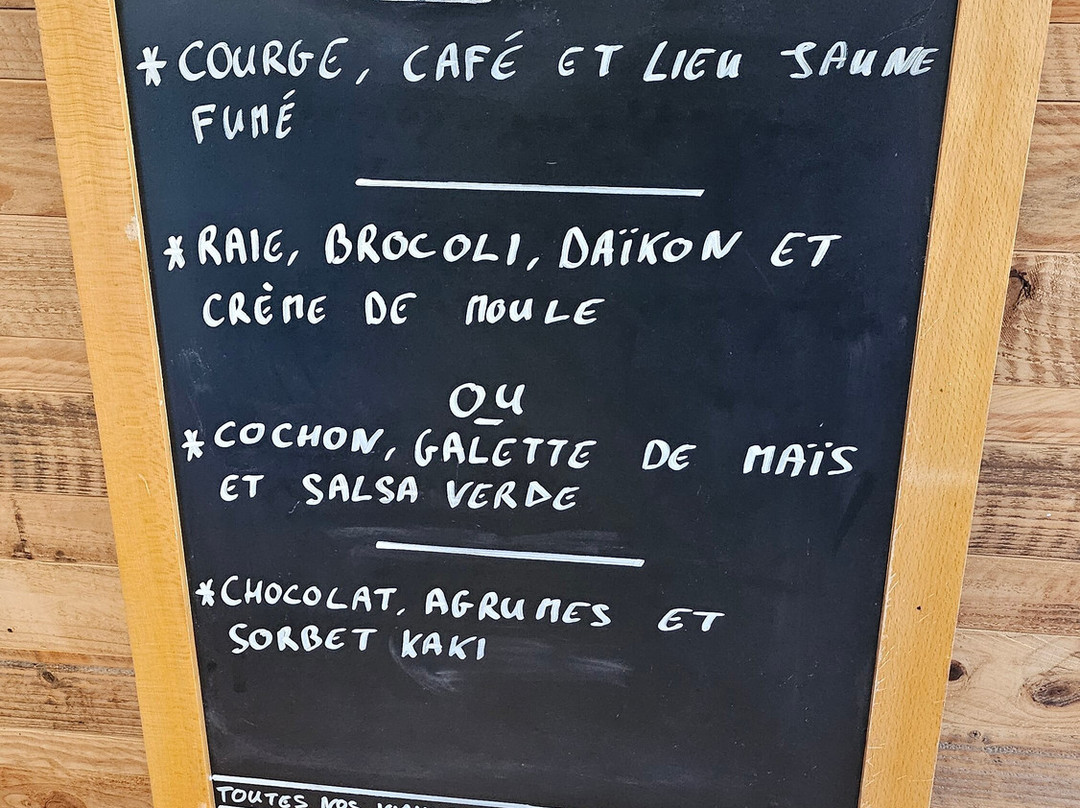 * COURGE, CAFÉ ET LIEU JAUNE
FUMÉ
* RAIE, BROCOLI, DAÏKON ET
CRÈME DE MOULE
OU
* COCHON, GALETTE DE MAÏS
ET SALSA VERDE
* CHOCOLAT, AGRUMES ET
SORBET KAKI
TOUTES NOS